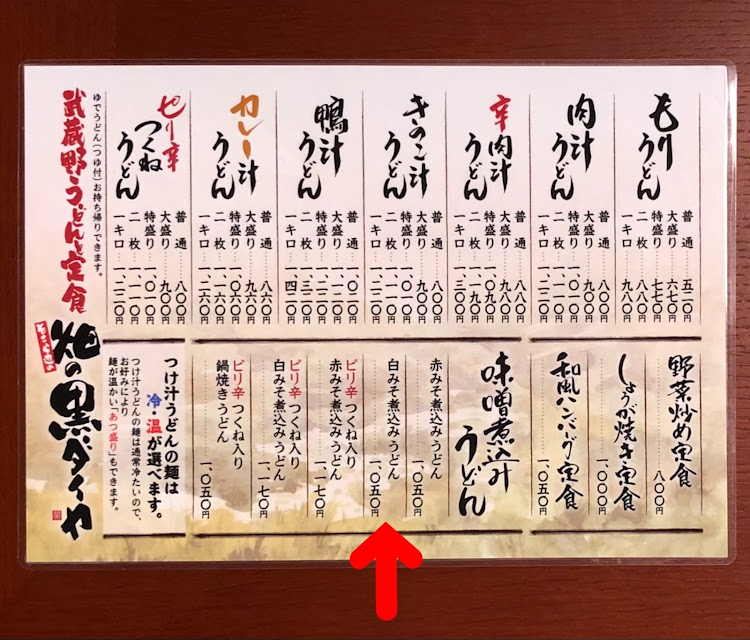 もりうどん
普通 五二〇円
大盛り 六七〇円
特盛り 七七〇円
二枚 八八〇円
一キロ 九八〇円
肉汁うどん
普通 八〇〇円
大盛り 九〇〇円
特盛り 一、〇一〇円
二枚 一、一一〇円
一キロ 一、二二〇円
辛肉汁うどん
普通 八八〇円
大盛り 九八〇円
特盛り 一、〇九〇円
二枚 一、一九〇円
一キロ 一、三〇〇円
きのこ汁うどん
普通 八〇〇円
大盛り 九〇〇円
特盛り 一、〇一〇円
二枚 一、一一〇円
一キロ 一、二二〇円
鴨汁うどん
普通
大盛り
特盛り
二枚
一キロ
カレー汁うどん
普通 八六〇円
大盛り 九六〇円
特盛り 一、〇六〇円
二枚 一、一六〇円
一キロ 一、二六〇円
ピリ辛つくねうどん
普通 八〇〇円
大盛り 九〇〇円
特盛り 一、〇一〇円
二枚 一、一一〇円
一キロ 一、二二〇円
ゆでうどん(つゆ付)お持ち帰りできます。
野菜炒め定食 八〇〇円
しょうが焼き定食 一、〇〇〇円
和風ハンバーグ定食 一、〇五〇円
味噌煮込みうどん
赤みそ煮込みうどん 一、〇五〇円
白みそ煮込みうどん 一、〇五〇円
ピリ辛つくね入り
赤みそ煮込みうどん 一、一七〇円
ピリ辛つくね入り
白みそ煮込みうどん 一、一七〇円
ピリ辛つくね入り
鍋焼きうどん 一、〇五〇円
つけ汁うどんの麺は
冷・温が選べます。
つけ汁うどんの麺は通常冷たいので、
お好みにより
麺が温かい「あつ盛り」もできます。
武蔵野うどんと定食
畑の黒ダイヤ